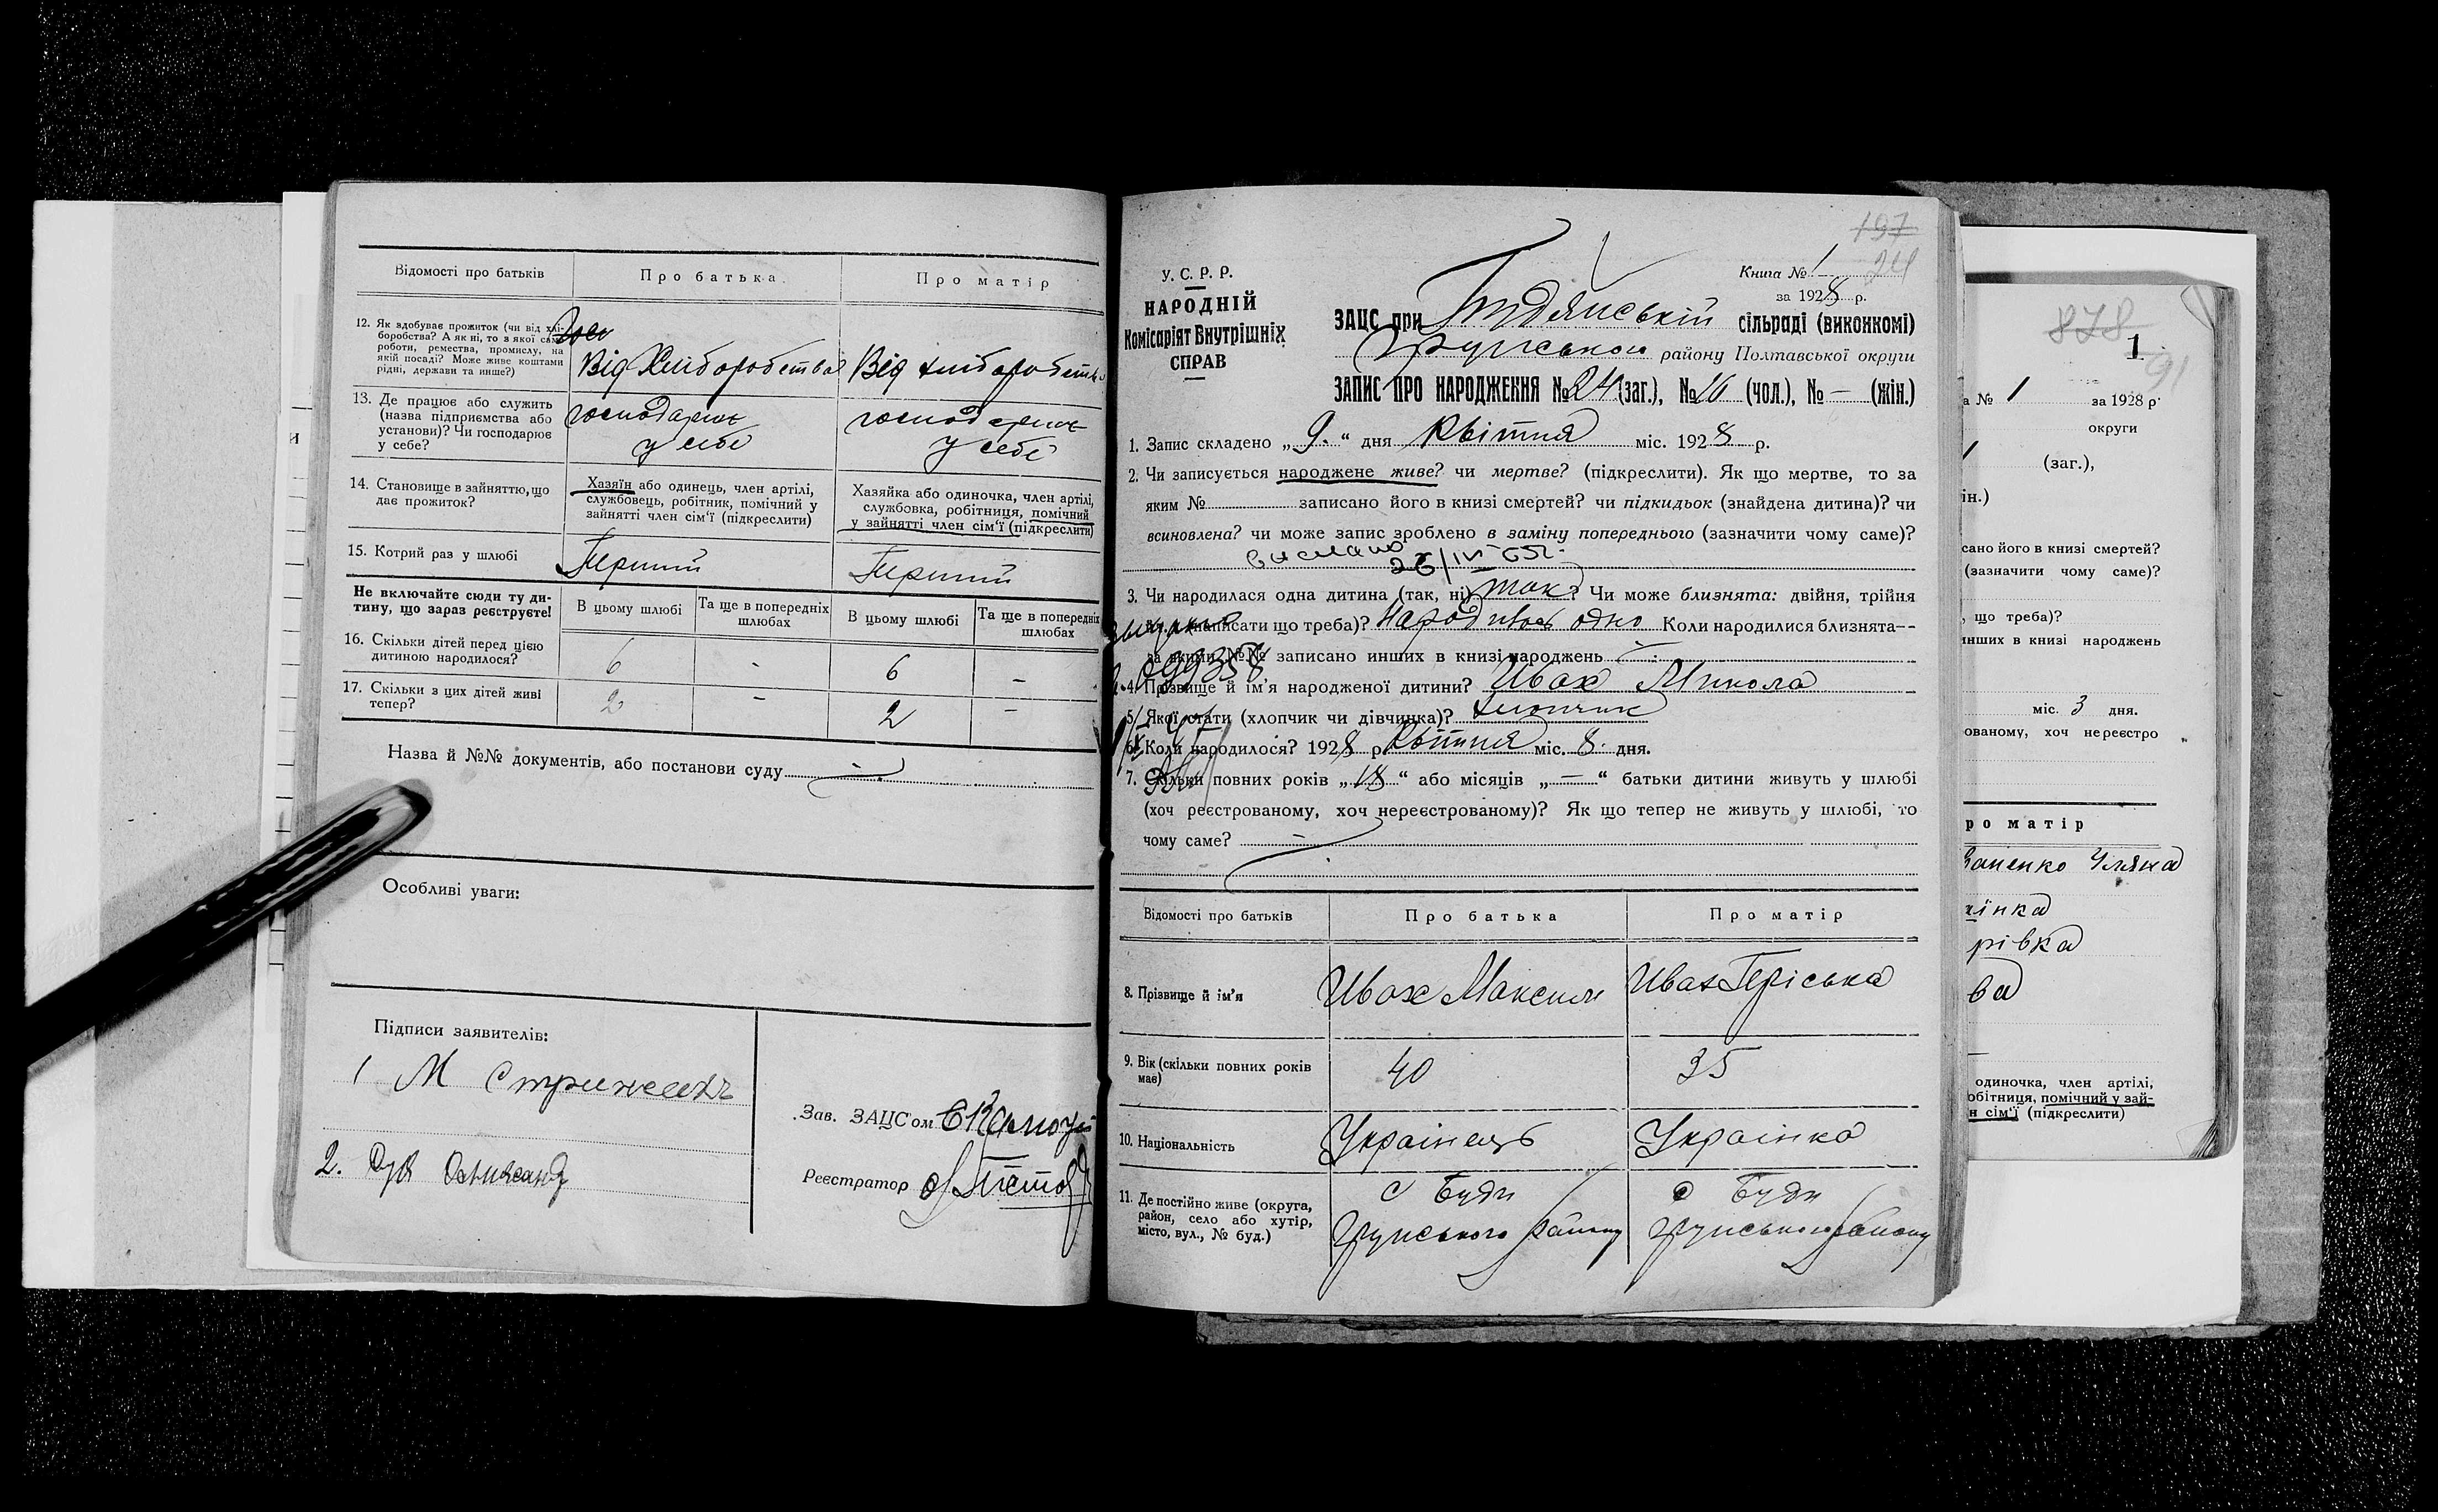 Відомості про батьків
Про батька
Про матір
12. Як здобуває прожиток (чи від хлі-
боробства? А як ні, то з якої саме
роботи, ремества, промислу, на
якій посаді? Може живе коштами
рідні, держави та инше?)
Від Хліборобства
Від хліборобства
13. Де працює або служить
(назва підприємства або
установи)? Чи господарює
у себе?
господарює
у себе
господарює
у себе
14. Становище в зайняттю, що
дає прожиток?
Хазяїн або одинець, член артілі,
службовець, робітник, помічний у
зайнятті член сім'ї (підкреслити)
Хазяйка або одиночка, член артілі,
службовка, робітниця, помічний
у зайнятті член сім'ї (підкреслити)
15. Котрий раз у шлюбі
Перший
Перший
Не включайте сюди ту ди-
тину, що зараз реєструєте!
В цьому шлюбі
Та ще в попередніх
шлюбах
В цьому шлюбі
Та ще в попередніх
шлюбах
16. Скільки дітей перед цією
дитиною народилося?
6 - 6 -
17. Скільки з цих дітей живі
тепер?
2 - 2 -
Назва й №№ документів, або постанови суду
Особливі уваги:
Підписи заявителів:
1 М
2.
Зав. ЗАЦС'ом
Реєстратор
197
24
У. С. Р. Р.
НАРОДНІЙ
Комісаріят Внутрішніх
СПРАВ
Книга № 1
за 1928 р.
ЗАЦС при сільраді (виконкомі)
Грунського району Полтавської округи
ЗАПИС ПРО НАРОДЖЕННЯ № 24 (заг.), № 16 (чол.), № — (жін.)
1. Запис складено „ 9. “ дня Квітня міс. 1928 р.
2. Чи записується народжене живе? чи мертве? (підкреслити). Як що мертве, то за
яким № записано його в книзі смертей? чи підкидьок (знайдена дитина)? чи
всиновлена? чи може запис зроблено в заміну попереднього (зазначити чому саме)?
3. Чи народилася одна дитина (так, ні) так? Чи може близнята: двійня, трійня
(написати що треба)? Народилось одно Коли народилися близнята—
за якими №№ записано инших в книзі народжень
4. Прізвище й ім'я народженої дитини? Ивах Микола
5. Якої стати (хлопчик чи дівчинка)? хлопчик
6. Коли народилося? 1928 р. Квітня міс. 8. дня.
7. Скільки повних років „ 18 “ або місяців „ — “ батьки дитини живуть у шлюбі
(хоч реєстрованому, хоч нереєстрованому)? Як що тепер не живуть у шлюбі, то
чому саме? —
Відомості про батьків
Про батька
Про матір
8. Прізвище й ім'я
Ивах Максим
Ивах Періська
9. Вік (скільки повних років
має)
40
35
10. Національність
Українець
Українка
11. Де постійно живе (округа,
район, село або хутір,
місто, вул., № буд.)
с Буди
Грунського району
с Буди
Грунського району
878
1
91
а № 1 за 1928 р.
округи
(заг.),
ін.)
сано його в книзі смертей?
(зазначити чому саме)?
, що треба)?
инших в книзі народжень
міс. 3 дня.
ованому, хоч нереєстро
ро матір
Уляна
їнка
рівка
ва
одиночка, член артілі,
обітниця, помічний у зай-
н сім'ї (підкреслити)